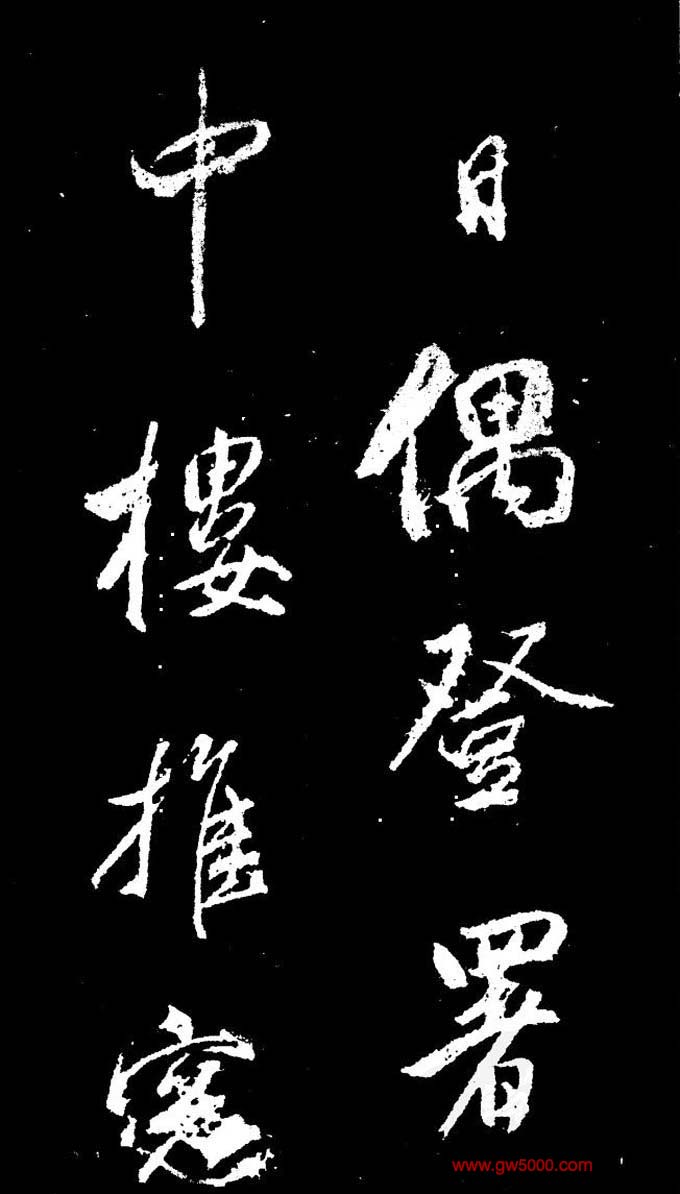 日偶登署
中樓推窓
www.gw5000.com